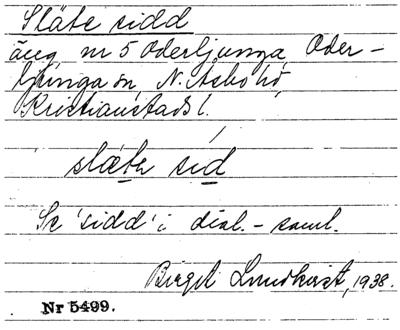 Släte sidd
äng nr 5 Oderljunga, Oder-
ljunga sn N. Åsbo hd,
Kristianstads l.
slæte sid
Se 'sidd' i dial.-saml.
Birgit Lundkvist, 1938.
Nr 5499.